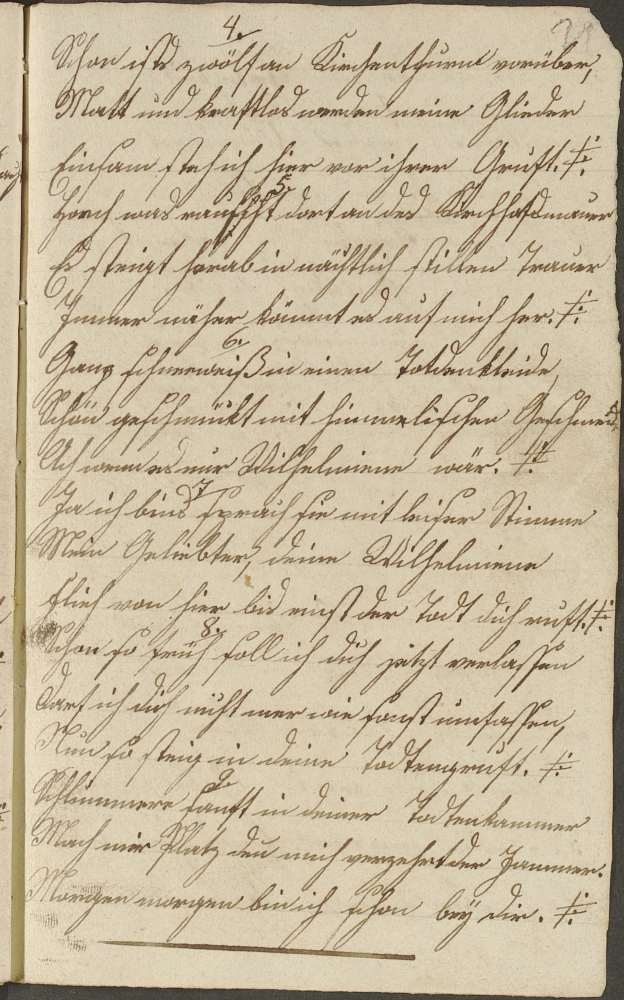 4.
Schon ists zwölf an Kirchenthurm vorüber,
Matt und kraftlos werden meine Glieder
Einsam steh ich hier vor ihrer Gruft. :/:
5.
Horch was rauscht dort an des Kirchhofsmauer
Es steigt herab in nächtlich stillen Trauer
Immer näher kömmt es auf mich her. :/:
6.
Ganz schneeweiß in einen Todenkleide,
Schön geschmükt mit himmelischen Geschmeid
Ach wenn es nur Wilhelmiene wär. :/:
7
Ja ich bins sprach sie mit leiser Stimme
Mein Geliebter, deine Wilhelmiene
Flieh von hier bis einst der Todt dich ruft. :/:
8.
Schon so früh soll ich dich jetzt verlassen
Darf ich dich nicht mer wie sonst umfassen,
Nun so steig in deine Todtengruft. :/:
9.
Schlummere sanft in deiner Todtenkammer
Mach mir Platz den mich verzehrt der Jammer.
Morgen morgen bin ich schon bey dir. :/: